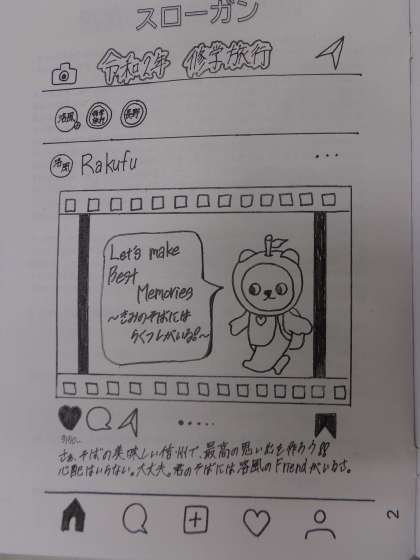 スローガン
令和2年 修学旅行
洛風 修学旅行 長野
洛風 Rakufu
Let's make
Best
Memories
〜きみのそばには
らくフレがいる!〜
さぁ、そばの美味しい信州で、最高の思い出を作ろう!!
心配はいらない。大丈夫。君のそばには洛風のFriendがいるさ。
2